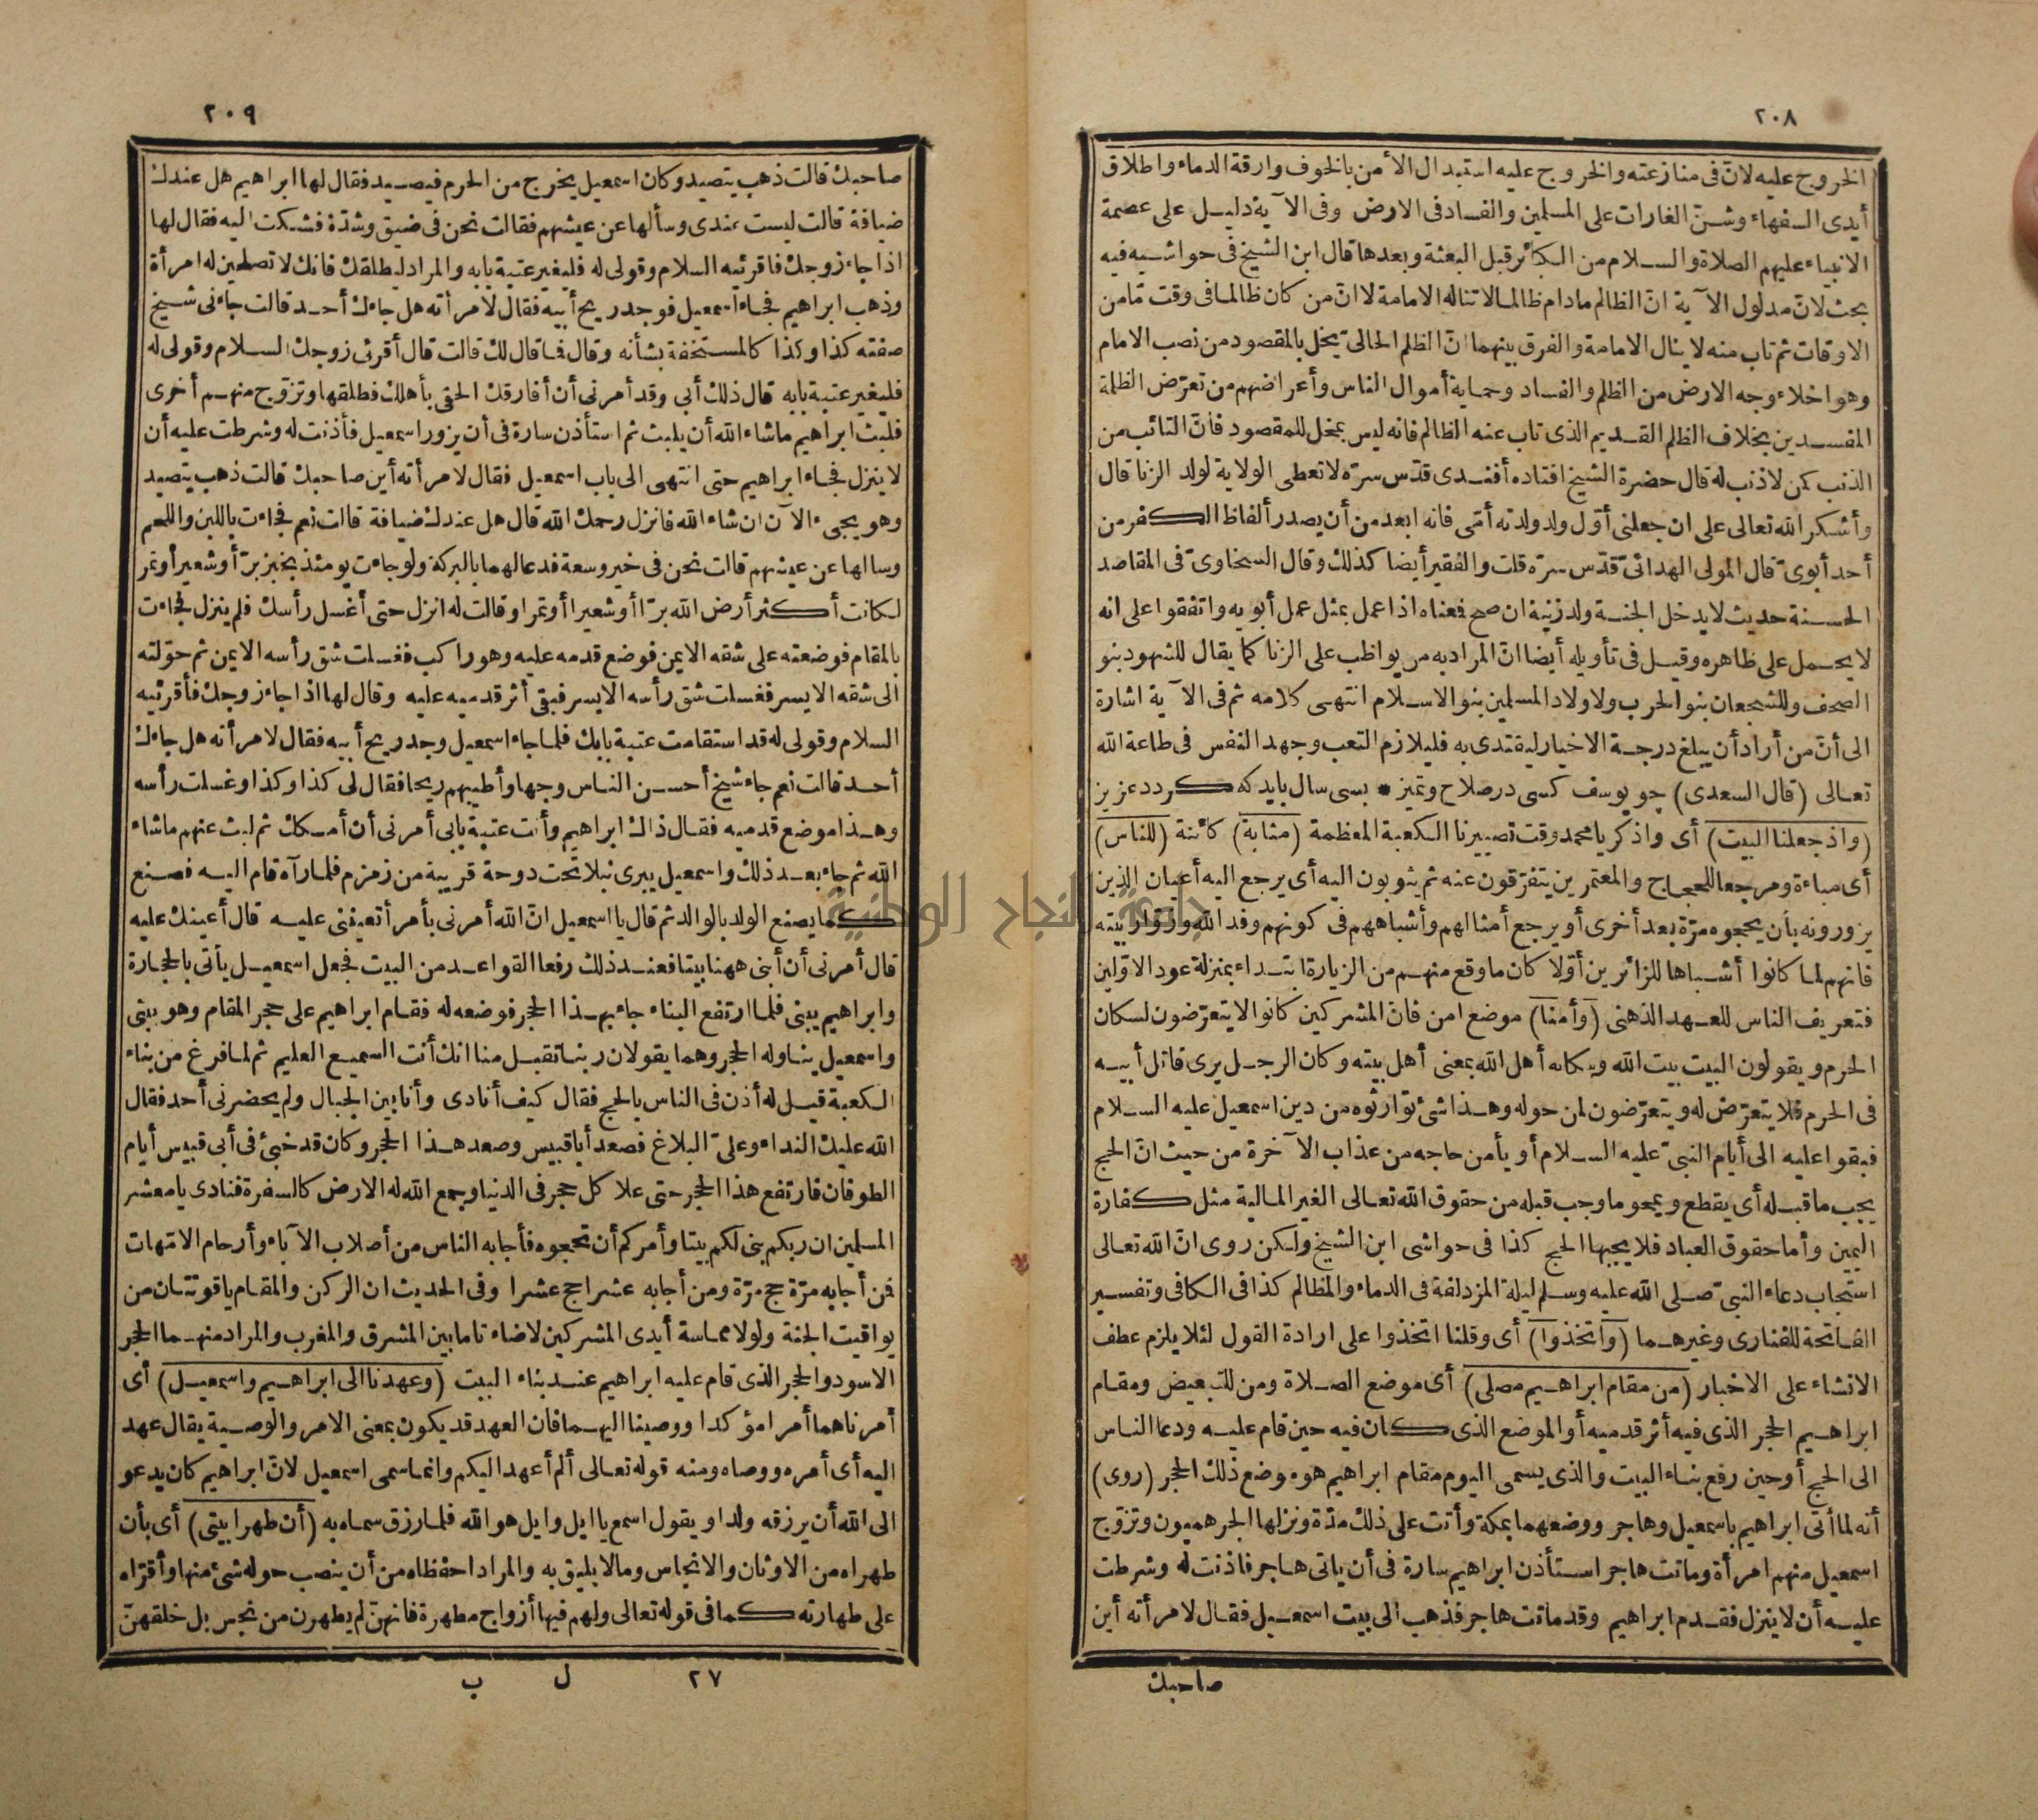 ٢٠٨
الخروج عليه لانّ فى منازعته والخروج عليه استبدال الأمن بالخوف واراقة الدماء واطلاق
أيدى السفهاء وشنّ الغارات على المسلمين والفساد فى الارض وفى الآية دليل على عصمة
الانبياء عليهم الصلاة والسلام من الكبائر قبل البعثة وبعدها قال ابن الشيخ فى حواشيه فيه
بحث لانّ مدلول الآية انّ الظالم مادام ظالما لا تناله الامامة لا انّ من كان ظالما فى وقت مّا من
الاوقات ثم تاب منه لا ينال الامامة والفرق بينهما انّ الظلم الحالىّ يخل بالمقصود من نصب الامام
وهو اخلاء وجه الارض من الظلم والفساد وحماية أموال الناس وأعراضهم من تعرّض الظلمة
المفسدين بخلاف الظلم القديم الذى تاب عنه الظالم فانه ليس بمخل للمقصود فانّ التائب من
الذنب كمن لا ذنب له قال حضرة الشيخ افتاده أفندى قدّس سرّه لا تعطى الولاية لولد الزنا قال
وأشكر الله تعالى على ان جعلنى أوّل ولد ولدته أمّى فانه ابعد من أن يصدر ألفاظ الكفر من
أحد أبوىّ قال المولى الهدائىّ قدّس سرّه قلت والفقير أيضا كذلك وقال السخاوىّ فى المقاصد
الحسنة حديث لا يدخل الجنة ولد زنية ان صح فمعناه اذا عمل بمثل عمل أبويه واتفقوا على انه
لا يحمل على ظاهره وقيل فى تأويله أيضا انّ المراد به من يواظب على الزنا كما يقال للشهود بنو
الصحف وللشجعان بنو الحرب ولاولاد المسلمين بنو الاسلام انتهى كلامه ثم فى الآية اشارة
الى أنّ من أراد أن يبلغ درجة الاخيار ليقتدى به فليلازم التعب وجهد النفس فى طاعة الله
تعالى (قال السعدى) چو يوسف كسى در صلاح وتميز * بسى سال بايد كه كردد عزيز
(واذ جعلنا البيت) أى واذكر يا محمد وقت تصييرنا الكعبة المعظمة (مثابة) كائنة (للناس)
أى مباءة ومرجعا للحجاج والمعتمرين يتفرّقون عنه ثم يثوبون اليه أى يرجع اليه أعيان الذين
يزورونه بأن يحجوه مرّة بعد أخرى أو يرجع أمثالهم وأشباههم فى كونهم وفد الله وزوّار بيته
فانهم لما كانوا أشباها للزائرين أوّلا كان ما وقع منهم من الزيارة ابتداء بمنزلة عود الاوّلين
فتعريف الناس للعهد الذهنى (وأمنا) موضع امن فانّ المشركين كانوا لا يتعرّضون لسكان
الحرم ويقولون البيت بيت الله وسكانه أهل الله بمعنى أهل بيته وكان الرجل يرى قاتل أبيه
فى الحرم فلا يتعرّض له ويتعرّضون لمن حوله وهذا شئ توارثوه من دين اسمعيل عليه السلام
فبقوا عليه الى أيام النبىّ عليه السلام أو يأمن حاجه من عذاب الآخرة من حيث انّ الحج
يجب ما قبله أى يقطع ويمحو ما وجب قبله من حقوق الله تعالى الغير المالية مثل كفارة
اليمين وأما حقوق العباد فلا يجبها الحج كذا فى حواشى ابن الشيخ ولكن روى انّ الله تعالى
استجاب دعاء النبىّ صلى الله عليه وسلم ليلة المزدلفة فى الدماء والمظالم كذا فى الكافى وتفسير
الفاتحة للفنارى وغيرهما (واتخذوا) أى وقلنا اتخذوا على ارادة القول لئلا يلزم عطف
الانشاء على الاخبار (من مقام ابراهيم مصلى) أى موضع الصلاة ومن للتبعيض ومقام
ابراهيم الحجر الذى فيه أثر قدميه أو الموضع الذى كان فيه حين قام عليه ودعا الناس
الى الحج أو حين رفع بناء البيت والذى يسمى اليوم مقام ابراهيم هو موضع ذلك الحجر (روى)
أنه لما أتى ابراهيم باسمعيل وهاجر ووضعهما بمكة وأتت على ذلك مدّة ونزلها الجرهميون وتزوّج
اسمعيل منهم امرأة وماتت هاجر استأذن ابراهيم سارة فى أن ياتى هاجر فاذنت له وشرطت
عليه أن لا ينزل فقدم ابراهيم وقد ماتت هاجر فذهب الى بيت اسمعيل فقال لامرأته أين
صاحبك
٢٠٩
صاحبك قالت ذهب يتصيد وكان اسمعيل يخرج من الحرم فيصيد فقال لها ابراهيم هل عندك
ضيافة قالت ليست عندى وسألها عن عيشهم فقالت نحن فى ضيق وشدّة فشكت اليه فقال لها
اذا جاء زوجك فاقرئيه السلام وقولى له فليغير عتبة بابه والمراد ليطلقك فانك لا تصلحين له امرأة
وذهب ابراهيم فجاء اسمعيل فوجد ريح أبيه فقال لامرأته هل جاءك أحد قالت جاءنى شيخ
صفته كذا وكذا كالمستخفة بشأنه وقال فما قال لك قالت قال أقرئى زوجك السلام وقولى له
فليغير عتبة بابه قال ذلك أبى وقد أمرنى أن أفارقك الحقى بأهلك فطلقها وتزوّج منهم أخرى
فلبث ابراهيم ماشاء الله أن يلبث ثم استأذن سارة فى أن يزور اسمعيل فأذنت له وشرطت عليه أن
لا ينزل فجاء ابراهيم حتى انتهى الى باب اسمعيل فقال لامرأته أين صاحبك قالت ذهب يتصيد
وهو يجىء الآن ان شاء الله فانزل رحمك الله قال هل عندك ضيافة قالت نعم فجاءت باللبن واللحم
وسالها عن عيشهم قالت نحن فى خير وسعة فدعا لهما بالبركة ولو جاءت يومئذ بخبز برّ أو شعير أو تمر
لكانت أكثر أرض الله برّا أو شعيرا أو تمرا وقالت له انزل حتى أغسل رأسك فلم ينزل فجاءت
بالمقام فوضعته على شقه الايمن فوضع قدمه عليه وهو راكب فغسلت شق رأسه الايمن ثم حوّلته
الى شقه الايسر فغسلت شق رأسه الايسر فبقى أثر قدميه عليه وقال لها اذا جاء زوجك فأقرئيه
السلام وقولى له قد استقامت عتبة بابك فلما جاء اسمعيل وجد ريح أبيه فقال لامرأته هل جاءك
أحد قالت نعم جاء شيخ أحسن الناس وجها وأطيبهم ريحا فقال لى كذا وكذا وغسلت رأسه
وهذا موضع قدميه فقال ذاك ابراهيم وأنت عتبة بابى أمرنى أن أمسكك ثم لبث عنهم ماشاء
الله ثم جاء بعد ذلك واسمعيل يبرى نبلا تحت دوحة قريبة من زمزم فلما رآه قام اليه فصنع
كما يصنع الولد بالوالد ثم قال يا اسمعيل انّ الله أمرنى بأمر أتعيننى عليه قال أعينك عليه
قال أمرنى أن أبنى ههنا بيتا فعند ذلك رفعا القواعد من البيت فجعل اسمعيل يأتى بالحجارة
وابراهيم يبنى فلما ارتفع البناء جاء بهذا الحجر فوضعه له فقام ابراهيم على حجر المقام وهو يبنى
واسمعيل يناوله الحجر وهما يقولان ربنا تقبل منا انك أنت السميع العليم ثم لما فرغ من بناء
الكعبة قيل له أذن فى الناس بالحج فقال كيف أنادى وأنا بين الجبال ولم يحضرنى أحد فقال
الله عليك النداء وعلىّ البلاغ فصعد أبا قبيس وصعد هذا الحجر وكان قد خبئ فى أبى قبيس أيام
الطوفان فارتفع هذا الحجر حتى علا كل حجر فى الدنيا وجمع الله له الارض كالسفرة فنادى يا معشر
المسلمين ان ربكم بنى لكم بيتا وأمركم أن تحجوه فأجابه الناس من أصلاب الآباء وأرحام الامّهات
فمن أجابه مرّة حج مرّة ومن أجابه عشرا حج عشرا وفى الحديث ان الركن والمقام ياقوتتان من
يواقيت الجنة ولولا مماسة أيدى المشركين لاضاءتا ما بين المشرق والمغرب والمراد منهما الحجر
الاسود والحجر الذى قام عليه ابراهيم عند بناء البيت (وعهدنا الى ابراهيم واسمعيل) أى
أمرناهما أمرا مؤكدا ووصينا اليهما فان العهد قد يكون بمعنى الامر والوصية يقال عهد
اليه أى أمره ووصاه ومنه قوله تعالى ألم أعهد اليكم وانما سمى اسمعيل لانّ ابراهيم كان يدعو
الى الله أن يرزقه ولدا ويقول اسمع يا ايل وايل هو الله فلما رزق سماه به (أن طهرا بيتى) أى بأن
طهراه من الاوثان والانجاس وما لا يليق به والمراد احفظاه من أن ينصب حوله شئ منها وأقرّاه
على طهارته كما فى قوله تعالى ولهم فيها أزواج مطهرة فانهنّ لم يطهرن من نجس بل خلقهنّ
٢٧ ل ب
جامعة النجاح الوطنية